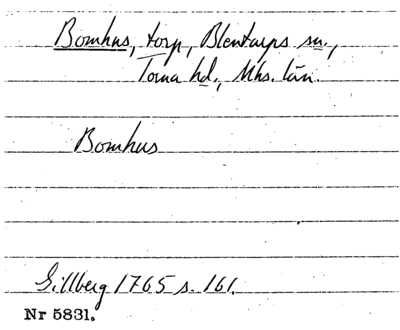 Bomhus, torp, Blentarps sn.,
Torna hd., Mhs. län.
Bomhus
Gillberg 1765 s. 161.
Nr 5831.